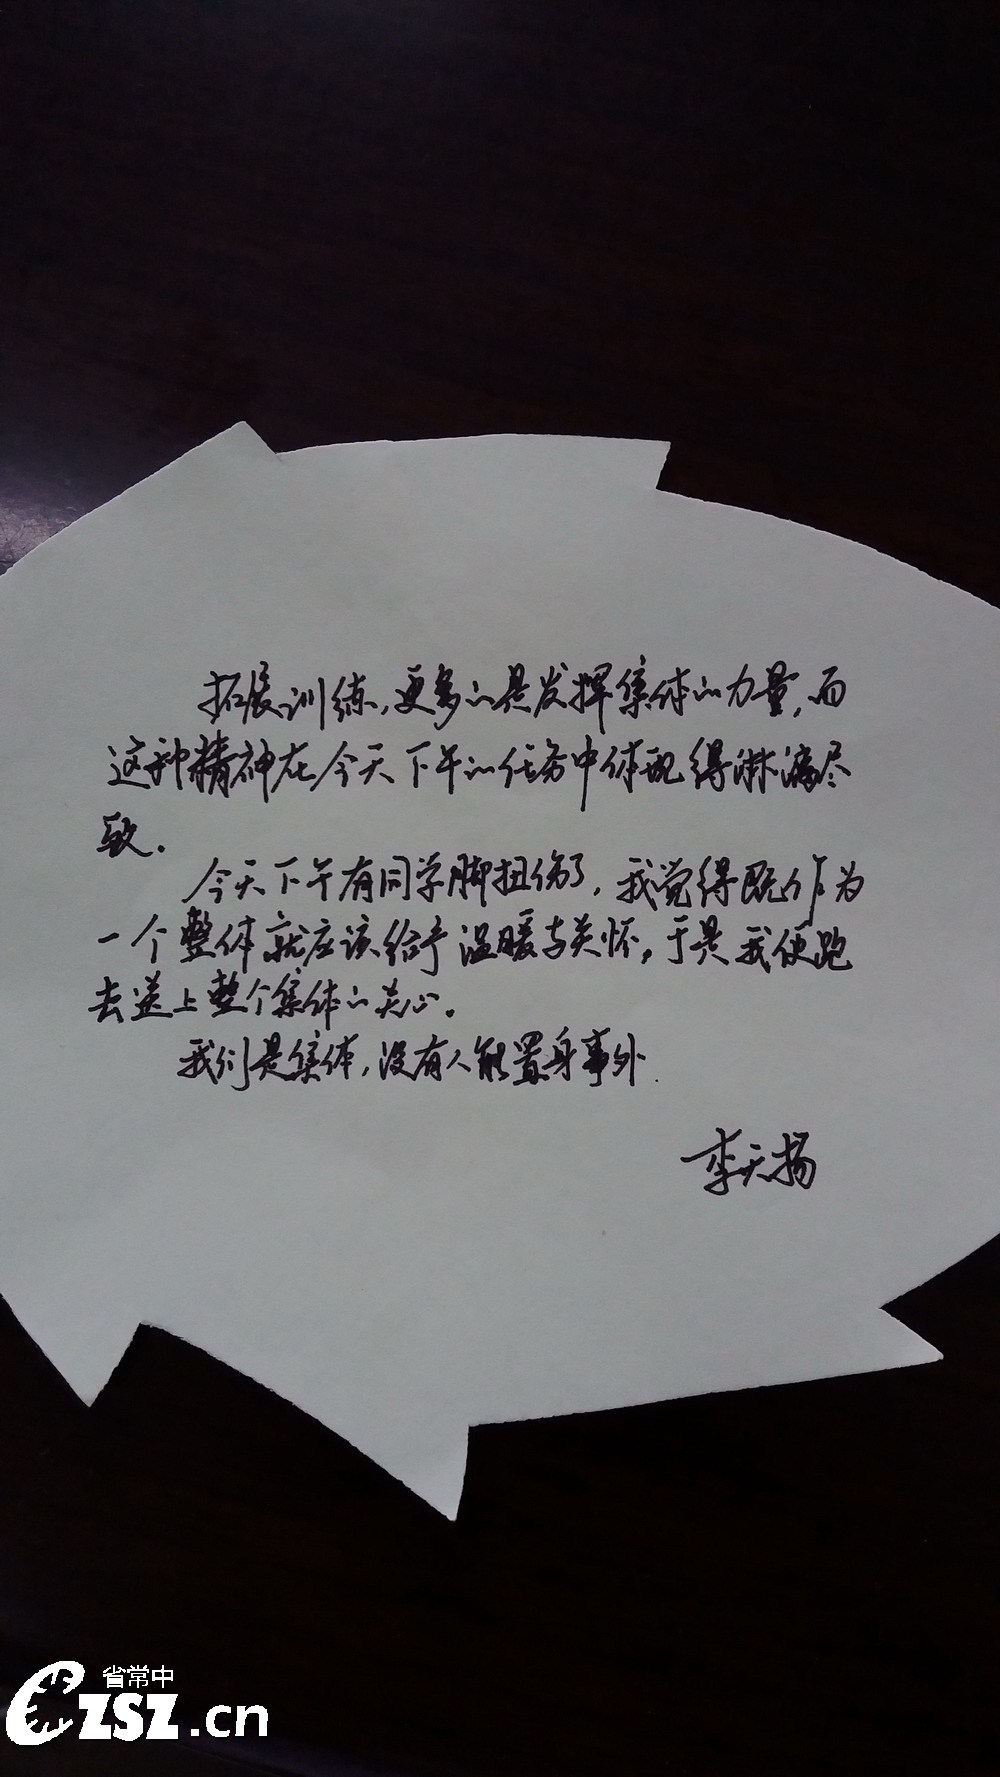 拓展训练，更多的是发挥集体的力量，而
这种精神在今天下午的任务中体现得淋漓尽
致。
今天下午有同学脚扭伤了，我觉得既作为
一个整体就应该给予温暖与关怀，于是我便跑
去送上整个集体的关心。
我们是集体，没有人能置身事外.
李天扬
省常中
CZSZ.cn